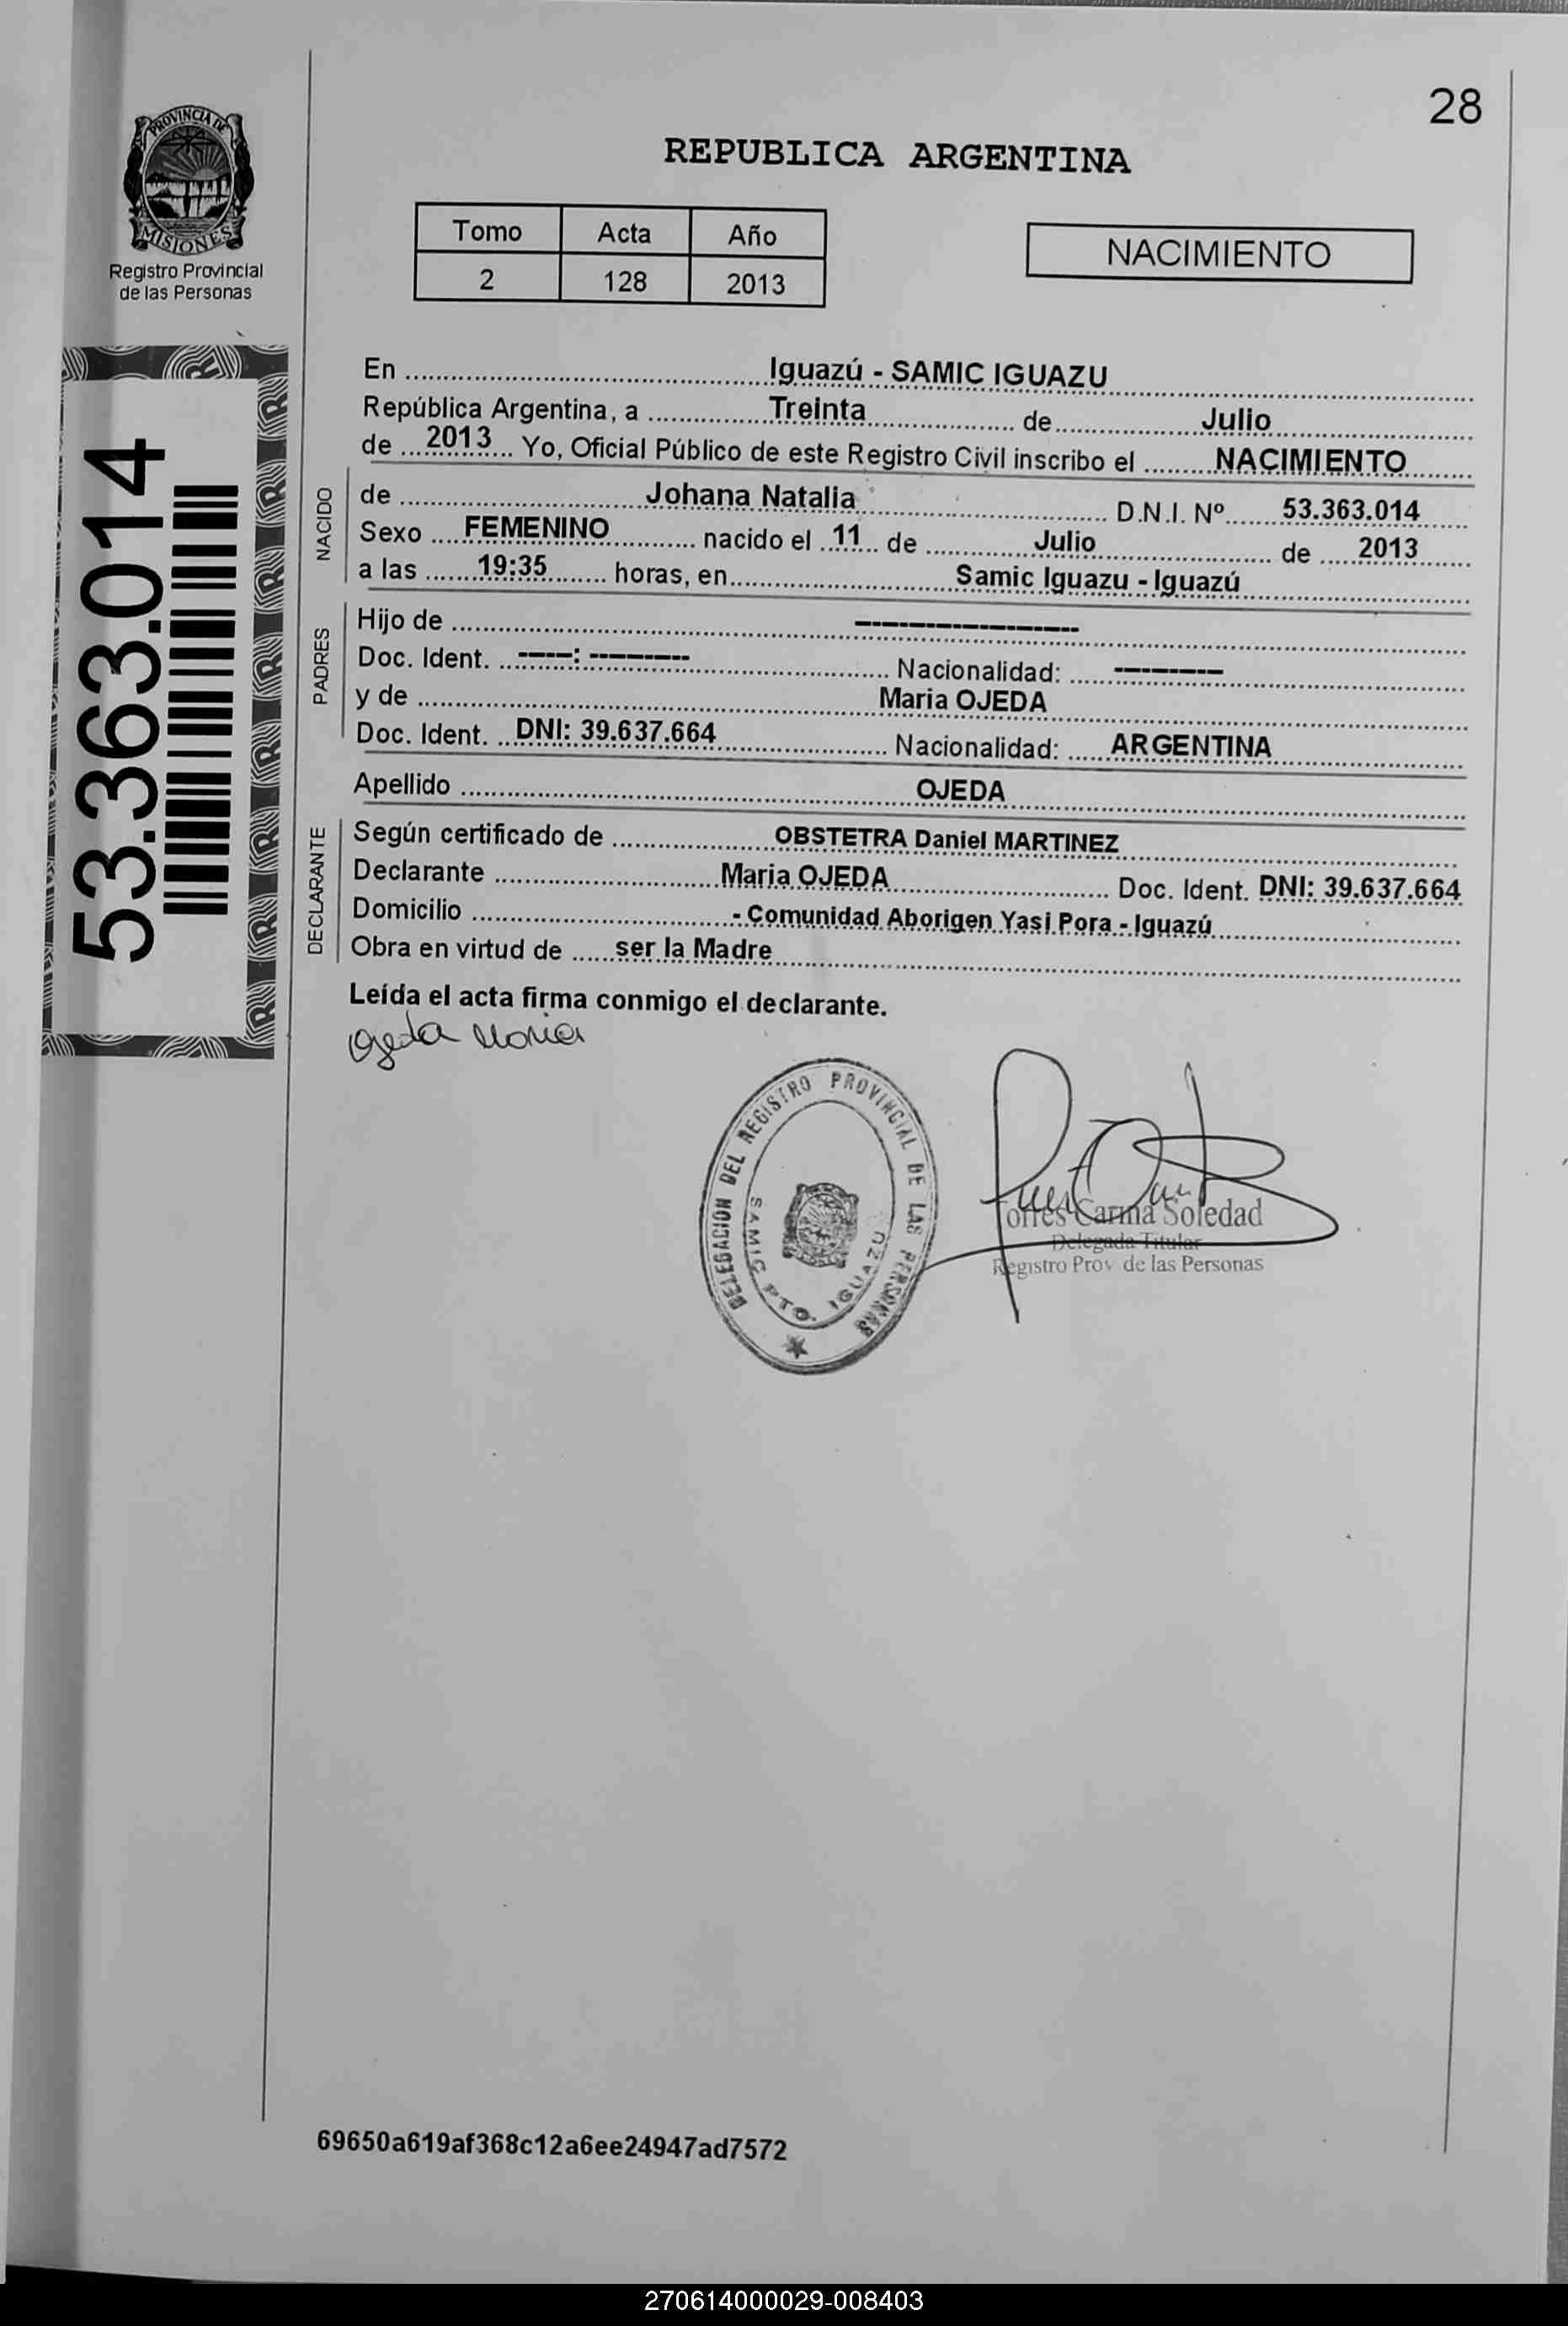 28
PROVINCIA DE
MISIONES
Registro Provincial
de las Personas
REPUBLICA ARGENTINA
Tomo Acta Año
2 128 2013
NACIMIENTO
53.363.014
En Iguazú - SAMIC IGUAZU
República Argentina, a Treinta de Julio
de 2013 Yo, Oficial Público de este Registro Civil inscribo el NACIMIENTO
NACIDO
de Johana Natalia D.N.I. Nº 53.363.014
Sexo FEMENINO nacido el 11 de Julio de 2013
a las 19:35 horas, en Samic Iguazu - Iguazú
PADRES
Hijo de --------------------
Doc. Ident. -----: --------- Nacionalidad: ----------
y de Maria OJEDA
Doc. Ident. DNI: 39.637.664 Nacionalidad: ARGENTINA
Apellido OJEDA
DECLARANTE
Según certificado de OBSTETRA Daniel MARTINEZ
Declarante Maria OJEDA Doc. Ident. DNI: 39.637.664
Domicilio - Comunidad Aborigen Yasi Pora - Iguazú
Obra en virtud de ser la Madre
Leída el acta firma conmigo el declarante.
Ojeda Maria
DELEGACION DEL REGISTRO PROVINCIAL DE LAS PERSONAS
SAMIC PTO. IGUAZU
Carina Soledad
Delegada Titular
Registro Prov de las Personas
69650a619af368c12a6ee24947ad7572
270614000029-008403